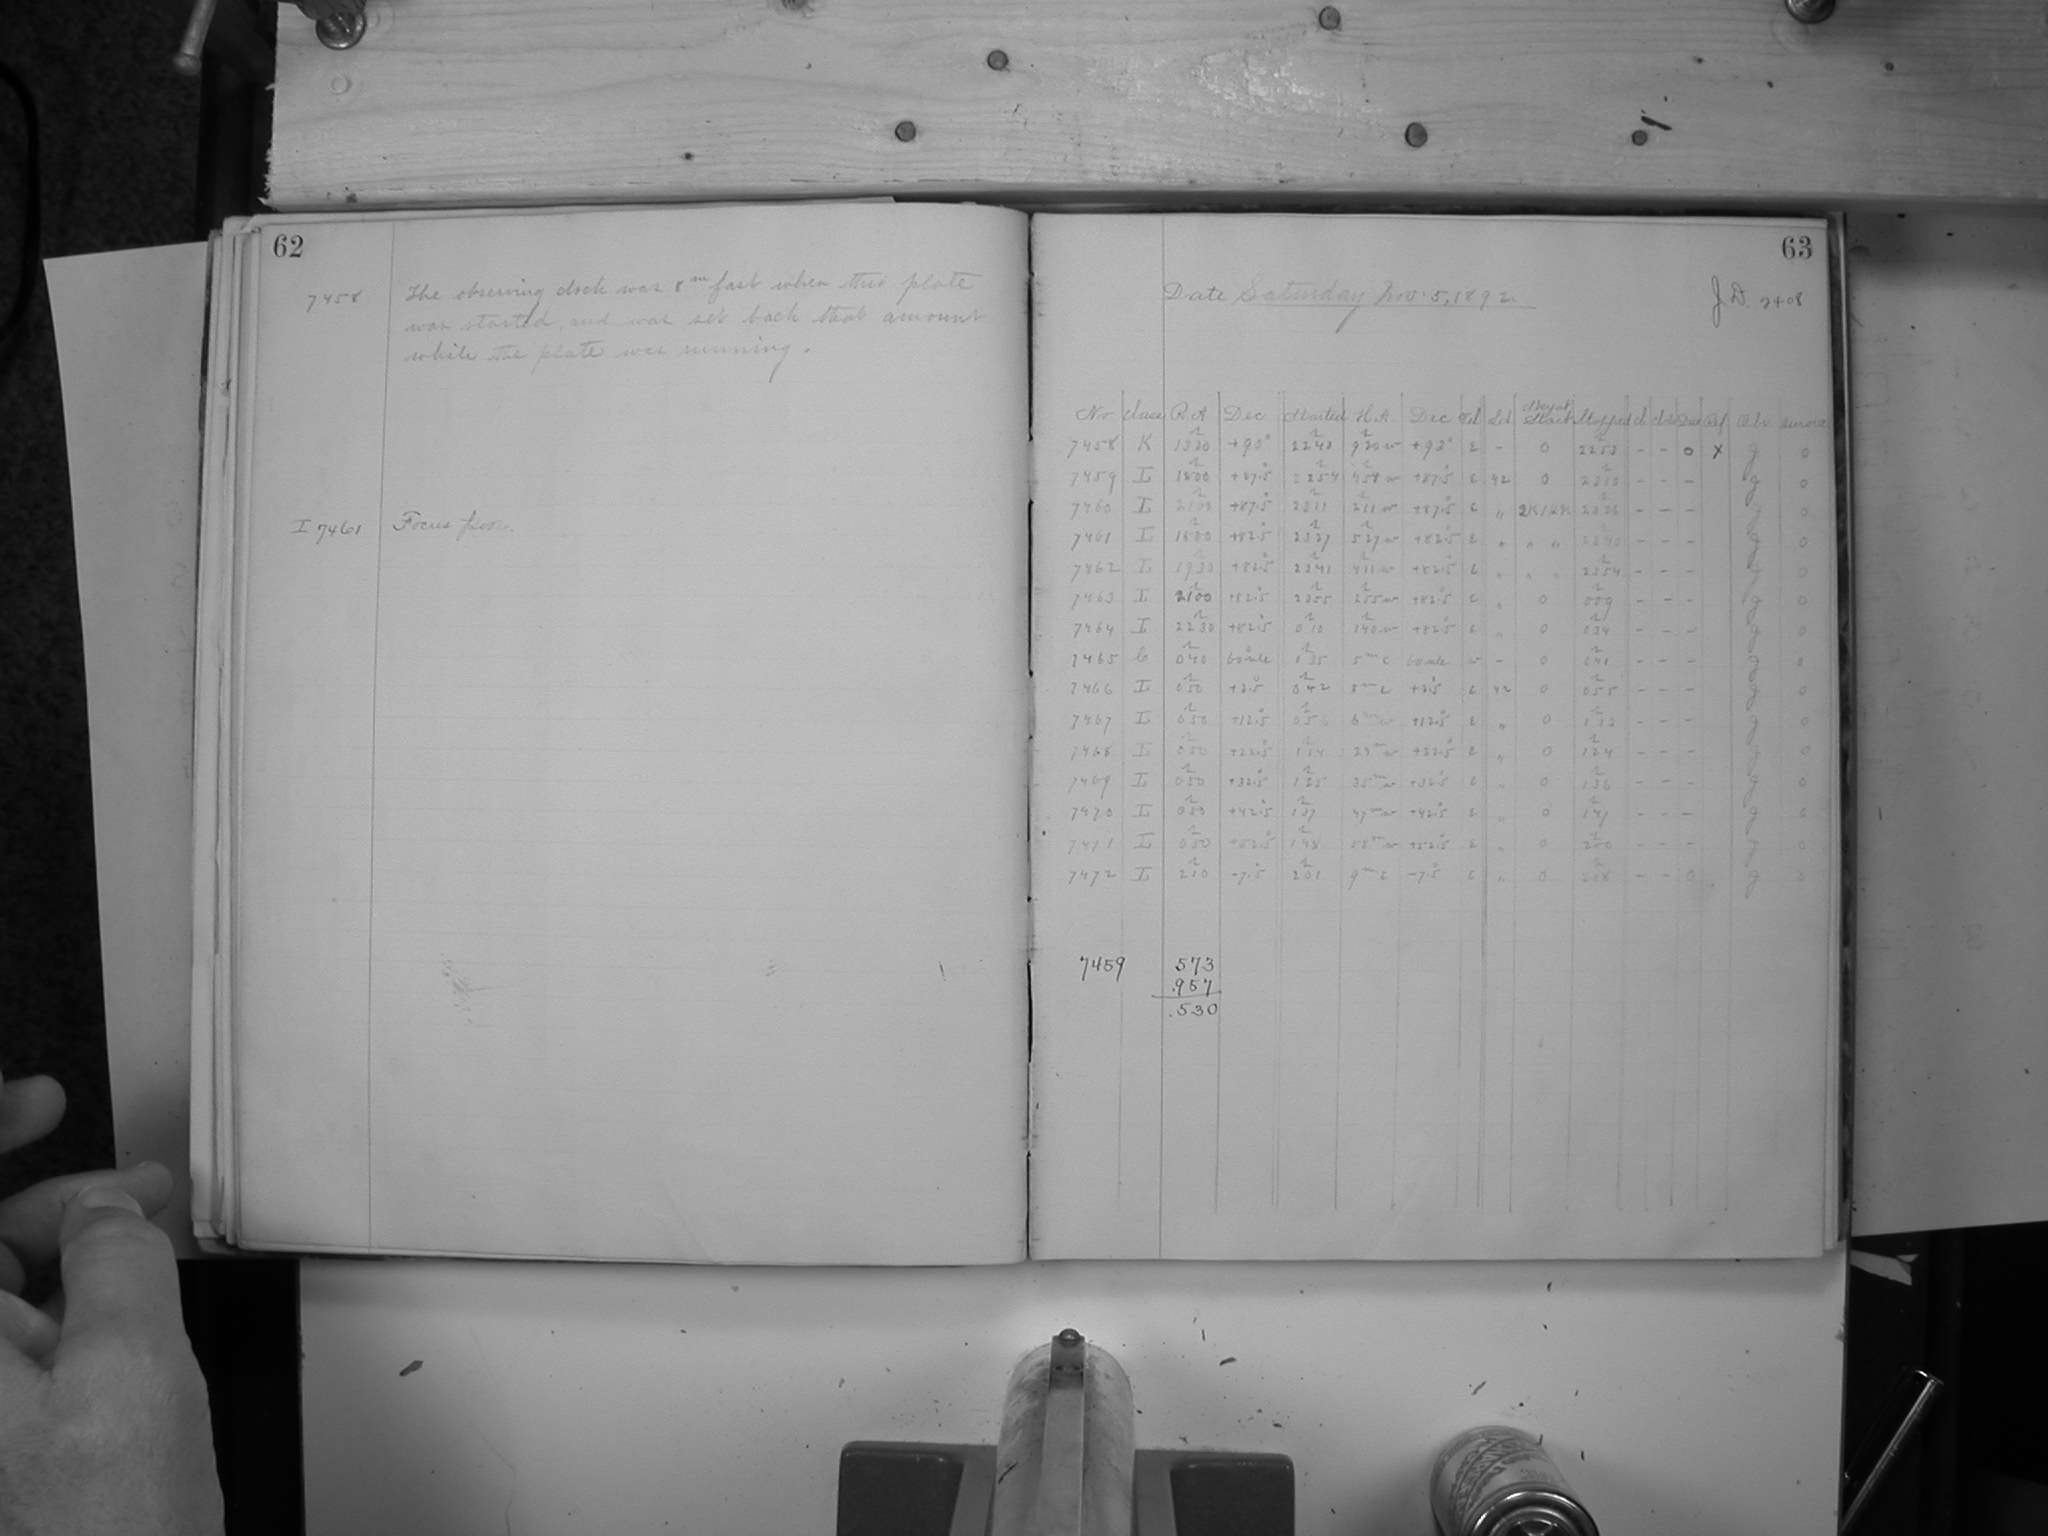 62
7458 The observing clock was 8m fast when this plate
was started, and was set back that amount
while the plate was running.
I 7461 Focus poor.
63
Date Saturday Nov. 5, 1892.
J.D. 2408
No Class R.A Dec Started H.A Dec Stopped Obs.
7458 K 1320 +90° 2240 920w +90° E - 0 2253 - - 0 X g 0
7459 I 1800 +87.5 2254 458w +87.5 E 42 0 2310 - - - g 0
7460 I 2100 +87.5 2311 211w +87.5 E " 2326 - - - g 0
7461 I 1800 +82.5 2327 527w +82.5 E " " " 2340 - - - g 0
7462 I 1930 +82.5 2341 411w +82.5 E " " " 2354 - - - g 0
7463 I 2100 +82.5 2355 255w +82.5 E " 0 009 - - - g 0
7464 I 2230 +82.5 010 140w +82.5 E " 0 034 - - - g 0
7465 040 035 5m E w - 0 041 g 0
7466 I 050 +2.5 042 8m E +2.5 E 42 0 055 - - - g 0
7467 I 050 +12.5 056 6m w +12.5 E " 0 113 - - - g 0
7468 I 050 +22.5 114 24m w E " 0 124 - - - g 0
7469 I 050 +32.5 125 35m w +32.5 E " 0 136 - - - g 0
7470 I 050 +42.5 137 47m w +42.5 E " 0 147 - - - g 0
7471 I 050 +52.5 148 58m w +52.5 E " 0 200 - - - g 0
7472 I 210 -7.5 201 9m E -7.5 E " 0 - - 0 g 0
7459 573
.957
.530